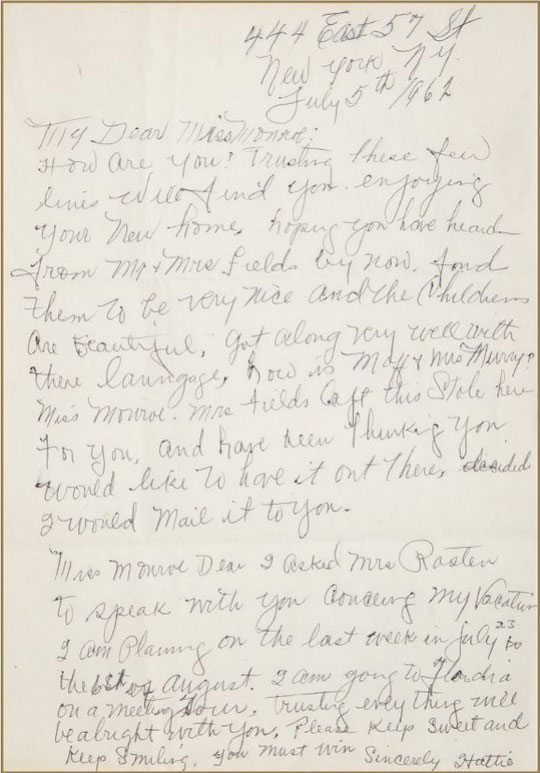 444 East 57 St
New York N.Y.
July 5th 1962
My Dear Miss Monroe:
How Are you? Trusting these few
lines will find you enjoying
your New home, hoping you have heard
from Mr & Mrs Fields by now, found
them to be very nice and the Childrens
are beautiful, got along very well with
there langage, how is Maff & Mrs Murray?
Miss Monroe. Mrs Fields Left this Stole here
For you, and have been thinking you
would like to have it out there, decided
I would Mail it to you.
Miss Monroe Dear I asked Mrs Rosten
to speak with you concing my Vacation
I am Planing on the last week in July 23 to
the 6st of August. I am going to Florida
on a meeting tour, trusting everything will
be alright with you, Please Keep Sweet and
Keep Smiling, you must win Sincerely Hattie